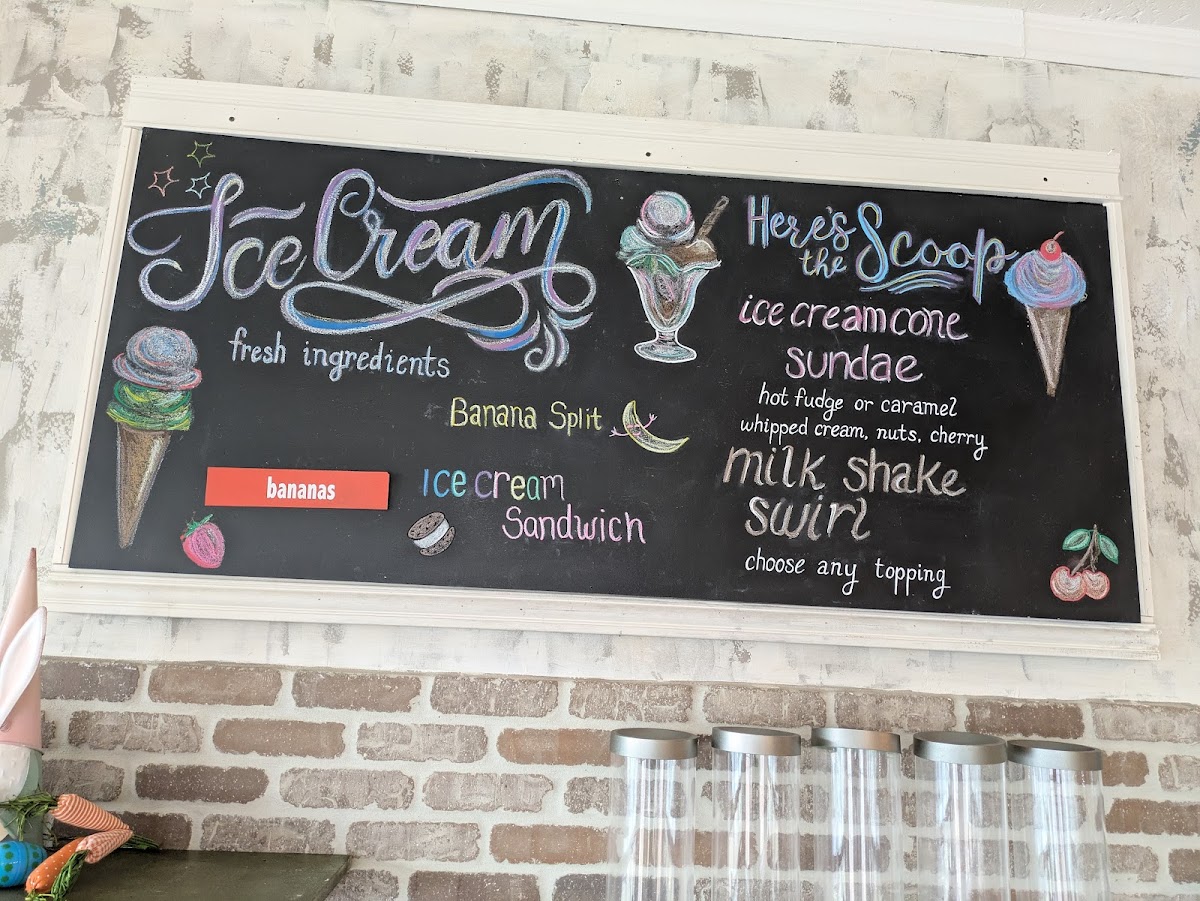 Ice Cream
fresh ingredients
Banana Split
bananas
Ice cream
Sandwich
Here's
the Scoop
ice cream cone
sundae
hot fudge or caramel
whipped cream, nuts, cherry
milk shake
swirl
choose any topping